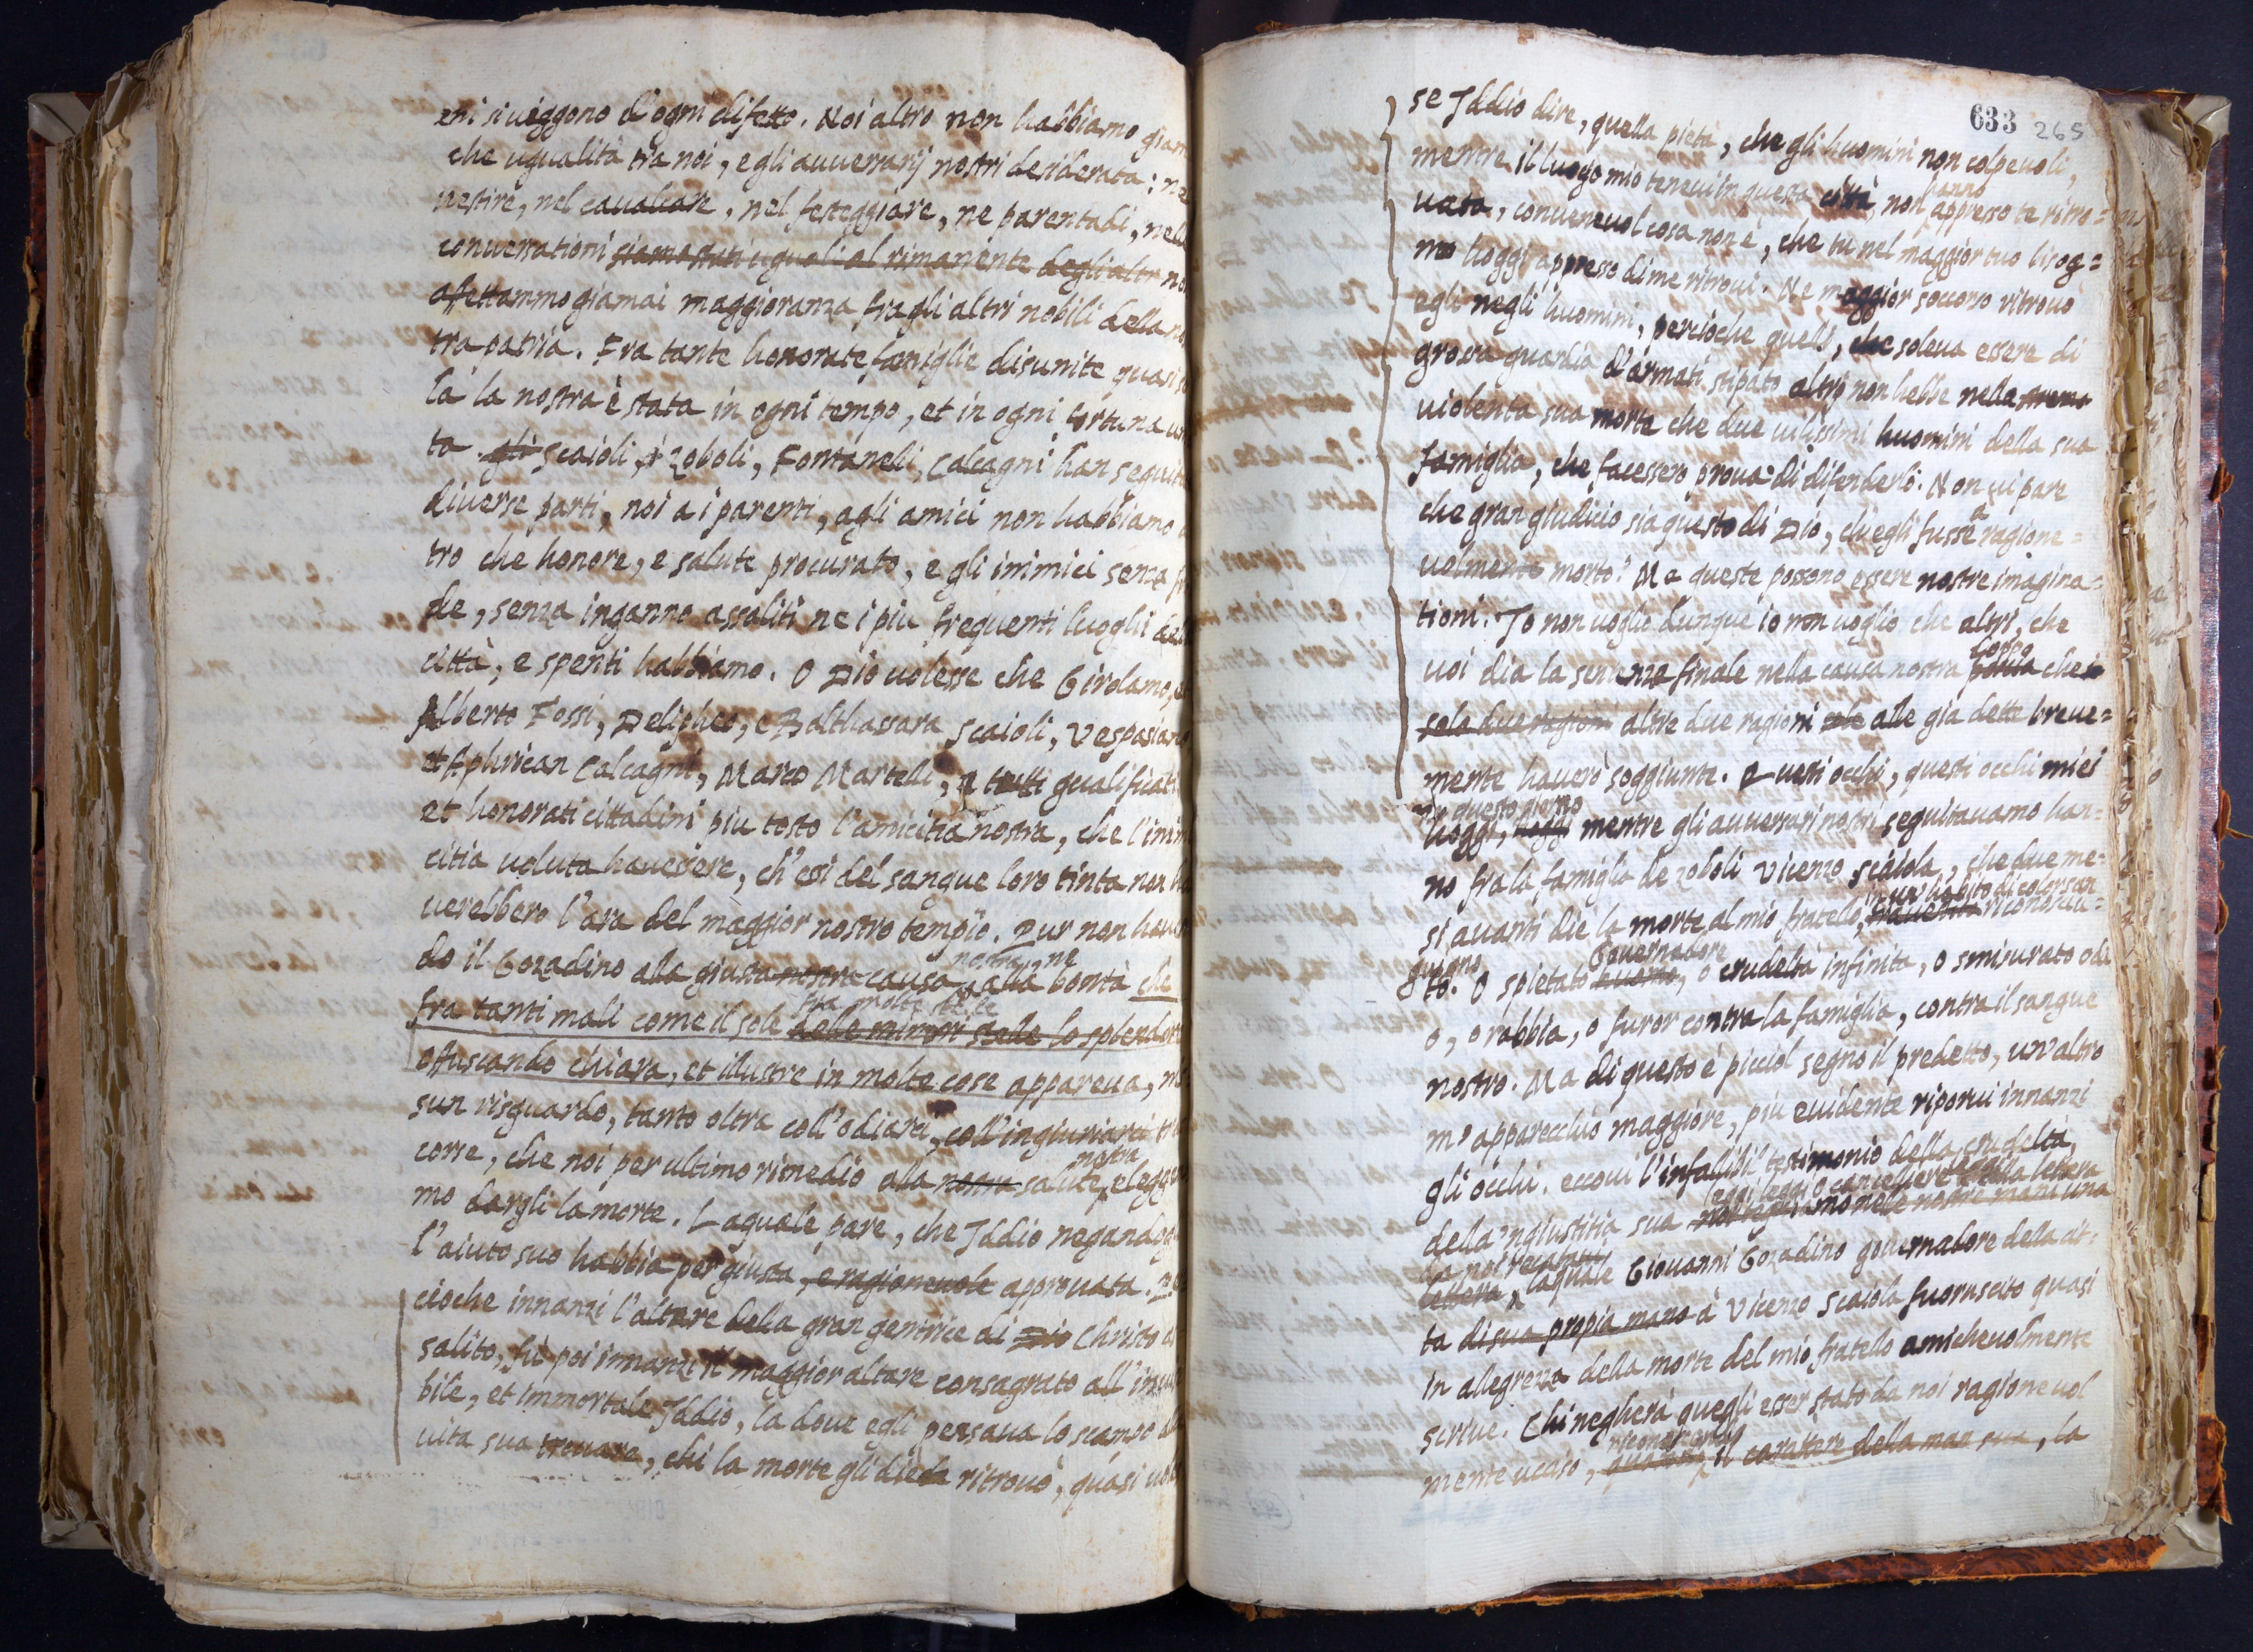 eni si ueggono d'ogni difetto. Noi altro non habbiamo giam
che ugualità tra noi, e gli auuersarij nostri desiderata: nel
uestire, nel caualcare, nel festeggiare, ne parentadi, nelle
conuersationi siamo stati uguali al rimanente degli altri no
affettammo giamai maggioranza fra gli altri nobili della no
tra patria. Fra tante honorate famiglie disunite quasi so
la la nostra è stata in ogni tempo, et in ogni fortuna un
ta gli Scaioli, i Zoboli, Fontaneli, Calcagni han seguite
diuerse parti, noi a i parenti, agli amici non habbiamo
tro che honore, e salute procurato, e gli inimici senza fr
de, senza inganno assaliti ne i piu frequenti luoghi del
città, e spenti habbiamo. O Dio uolesse che Girolamo, e
Alberto Fossi, Delipheo, e Balthassara Scaioli, Vespasian
et Aphrican Calcagni, Marco Martelli, e tutti qualificati
et honorati cittadini piu tosto l'amicitia nostra, che l'inim
citia uoluta hauessere, ch'essi del sangue loro tinta non ha
uerebbero l'ara del maggior nostro tempio. Pur non hauen
nostra, ne
do il Gozadino alla giusta nostra causa alla bontà che
fra molte stelle
fra tanti mali come il sole delle minori stelle lo splendore
offuscando chiara, et illustre in molte cose appareua, ne
sun risguardo, tanto oltra coll'odiarci, coll'ingiuriarci tra
nostra
corse, che noi per ultimo rimedio alla nostra salute eleggem
mo dargli la morte. Laquale pare, che Iddio negandogli
l'aiuto suo habbia per giusta, e ragioneuole approuata. Per
cioche innanzi l'altare della gran genitrice di Dio Christo
salito, fù poi innanzi il maggior altare consagrato all'inuisi
bile, et immortale Iddio, la doue egli pensaua lo scampo del
uita sua trouare, chi la morte gli diede ritrouò, quasi uole
633 265
se Iddio dire, quella pietà, che gli huomini non colpeuoli,
hanno
mentre il luogo mio teneui in questa città, non appresso te ritro=
uata, conueneuol cosa non è, che tu nel maggior tuo bisog=
no hoggi appresso di me ritroui. Ne maggior soccorso ritrouò
egli negli huomini, percioche quelli, che soleua essere di
grossa guardia d'armati stipato altro non hebbe nella
uiolenta sua morte che due uilissimi huomini della sua
famiglia, che facessero proua di difenderlo. Non ui pare
che gran giudicio sia questo di Dio, ch'egli fusse ragione=
uolmente morto? Ma queste possono essere nostre imagina=
tioni. Io non uoglio dunque io non uoglio che altri, che
doppo
uoi dia la sentenza finale nella causa nostra che
solo due ragioni altre due ragioni alle già dette breue=
mente hauerò soggiunte. Questi occhi, questi occhi miei
in questo giorno
hoggi, hoggi mentre gli auuersari nostri seguitauamo han=
no fra la famiglia de Zoboli Vicenzo Scaiola, che due me=
in un'habito di color san
si auanti die la morte al mio fratello, trauestito riconosciu=
guigno
Gouernadore
to. O spietato huomo, o crudeltà infinita, o smisurato odi
o, o rabbia, o furor contra la famiglia, contra il sangue
nostro. Ma di questo è picciol segno il predetto, un'altro
m'apparecchio maggiore, piu euidente riporui innanzi
gli occhi. eccoui l'infallibil testimonio della crudeltà,
leggi leggi o cancelliere la lettera
della 'ngiustitia sua nostre mani una
da noi
lettera, laquale Giouanni Gozadino gouernadore della cit=
ta di sua propia mano à Vicenzo Scaiola fuoruscito quasi
in allegrezza della morte del mio fratello amicheuolmente
scriue. Chi negherà quegli esser stato da noi ragioneuol
mente ucciso, il carattere della man sua, la